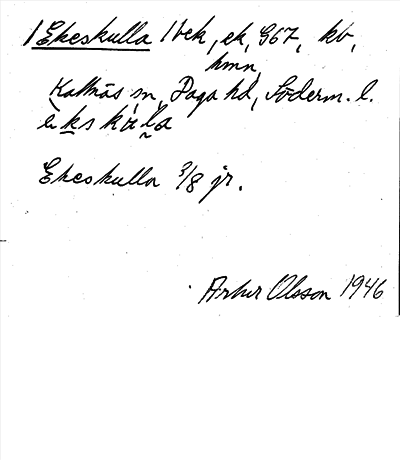 1 Ekeskulla 1 bek, ek, G67, kb,
hmn,
Kattnäs sn, Daga hd, Söderm. l.
Ekeskulla 3/8 jr.
Artur Olsson 1946